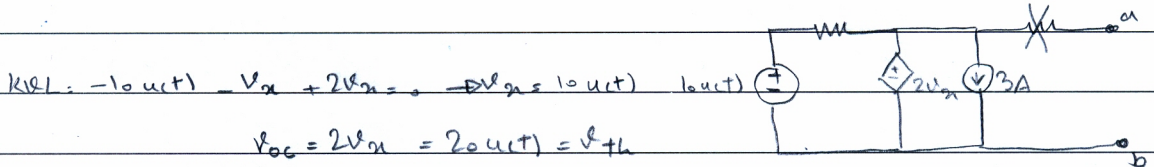 a
KVL: -10u(t) - Vx + 2Vx = 0 → Vx = 10u(t)
10u(t)
+
-
±
2Vx
3A
Voc = 2Vx = 20u(t) = Vth
b